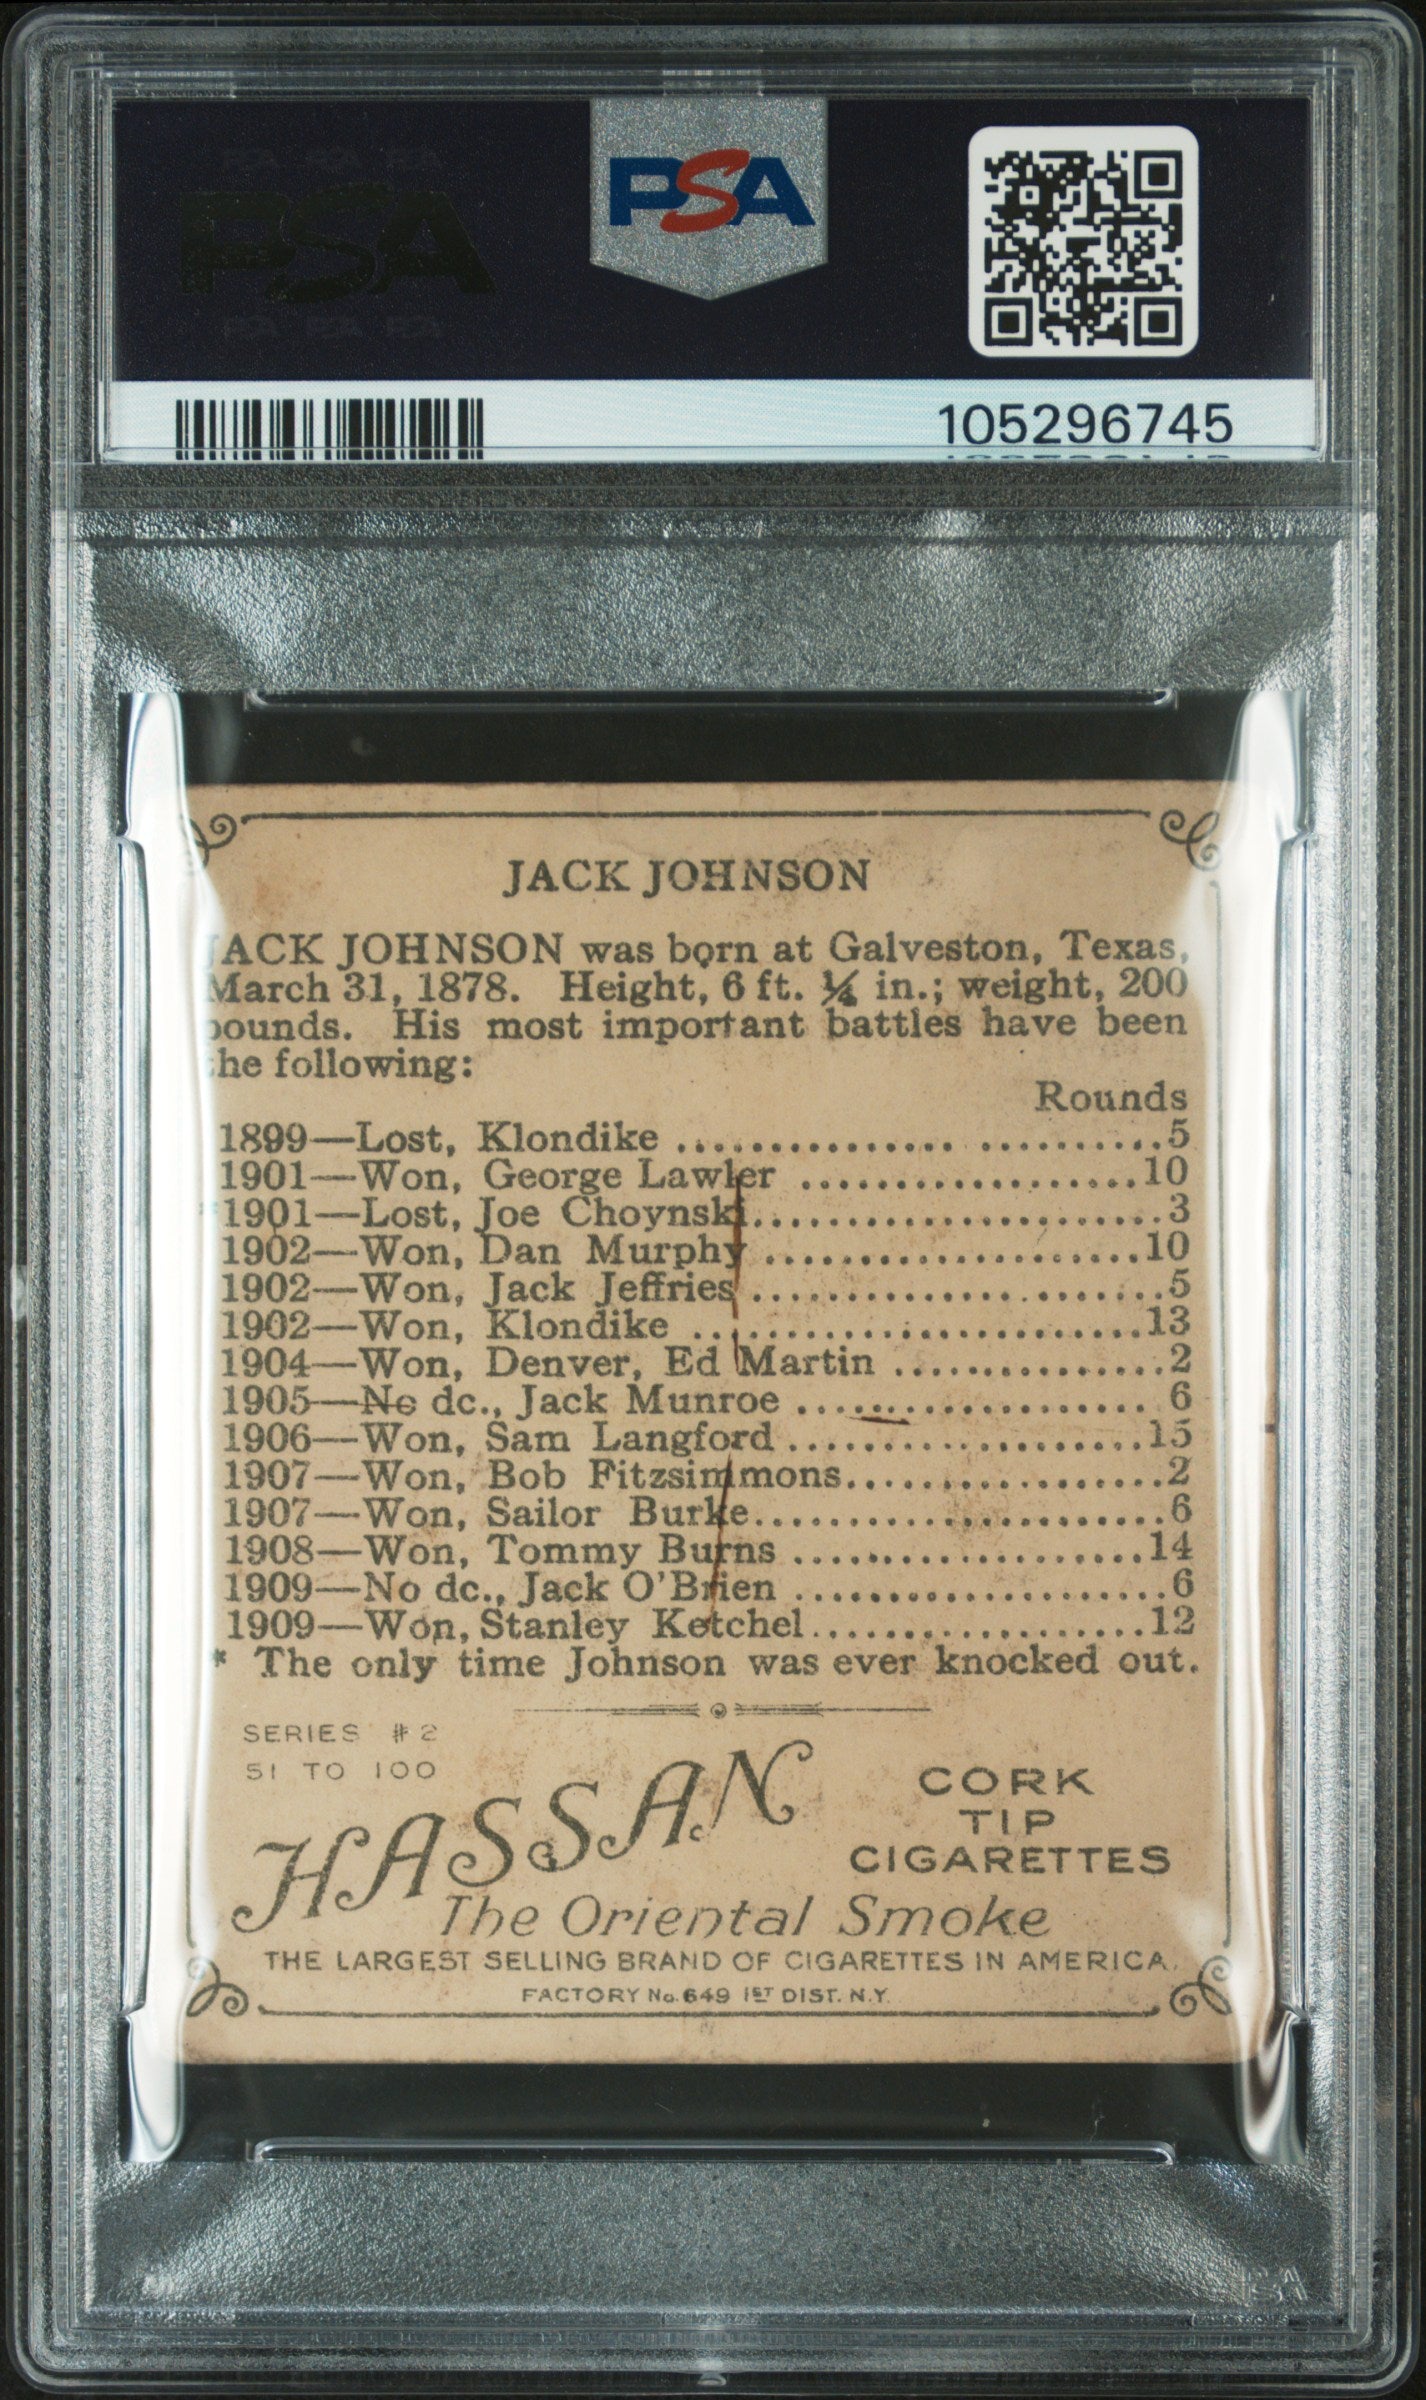 PSA
105296745
JACK JOHNSON
JACK JOHNSON was born at Galveston, Texas,
March 31, 1878. Height, 6 ft. ¼ in.; weight, 200
pounds. His most important battles have been
the following:
Rounds
1899—Lost, Klondike ......................... 5
1901—Won, George Lawler .................. 10
*1901—Lost, Joe Choynski...................... 3
1902—Won, Dan Murphy .................... 10
1902—Won, Jack Jeffries ...................... 5
1902—Won, Klondike ........................ 13
1904—Won, Denver, Ed Martin ............... 2
1905—No dc., Jack Munroe ................... 6
1906—Won, Sam Langford ................... 15
1907—Won, Bob Fitzsimmons................. 2
1907—Won, Sailor Burke...................... 6
1908—Won, Tommy Burns ................... 14
1909—No dc., Jack O'Brien .................... 6
1909—Won, Stanley Ketchel.................. 12
* The only time Johnson was ever knocked out.
SERIES #2
51 TO 100
HASSAN
CORK
TIP
CIGARETTES
The Oriental Smoke
THE LARGEST SELLING BRAND OF CIGARETTES IN AMERICA.
FACTORY No. 649 1ST DIST. N.Y.